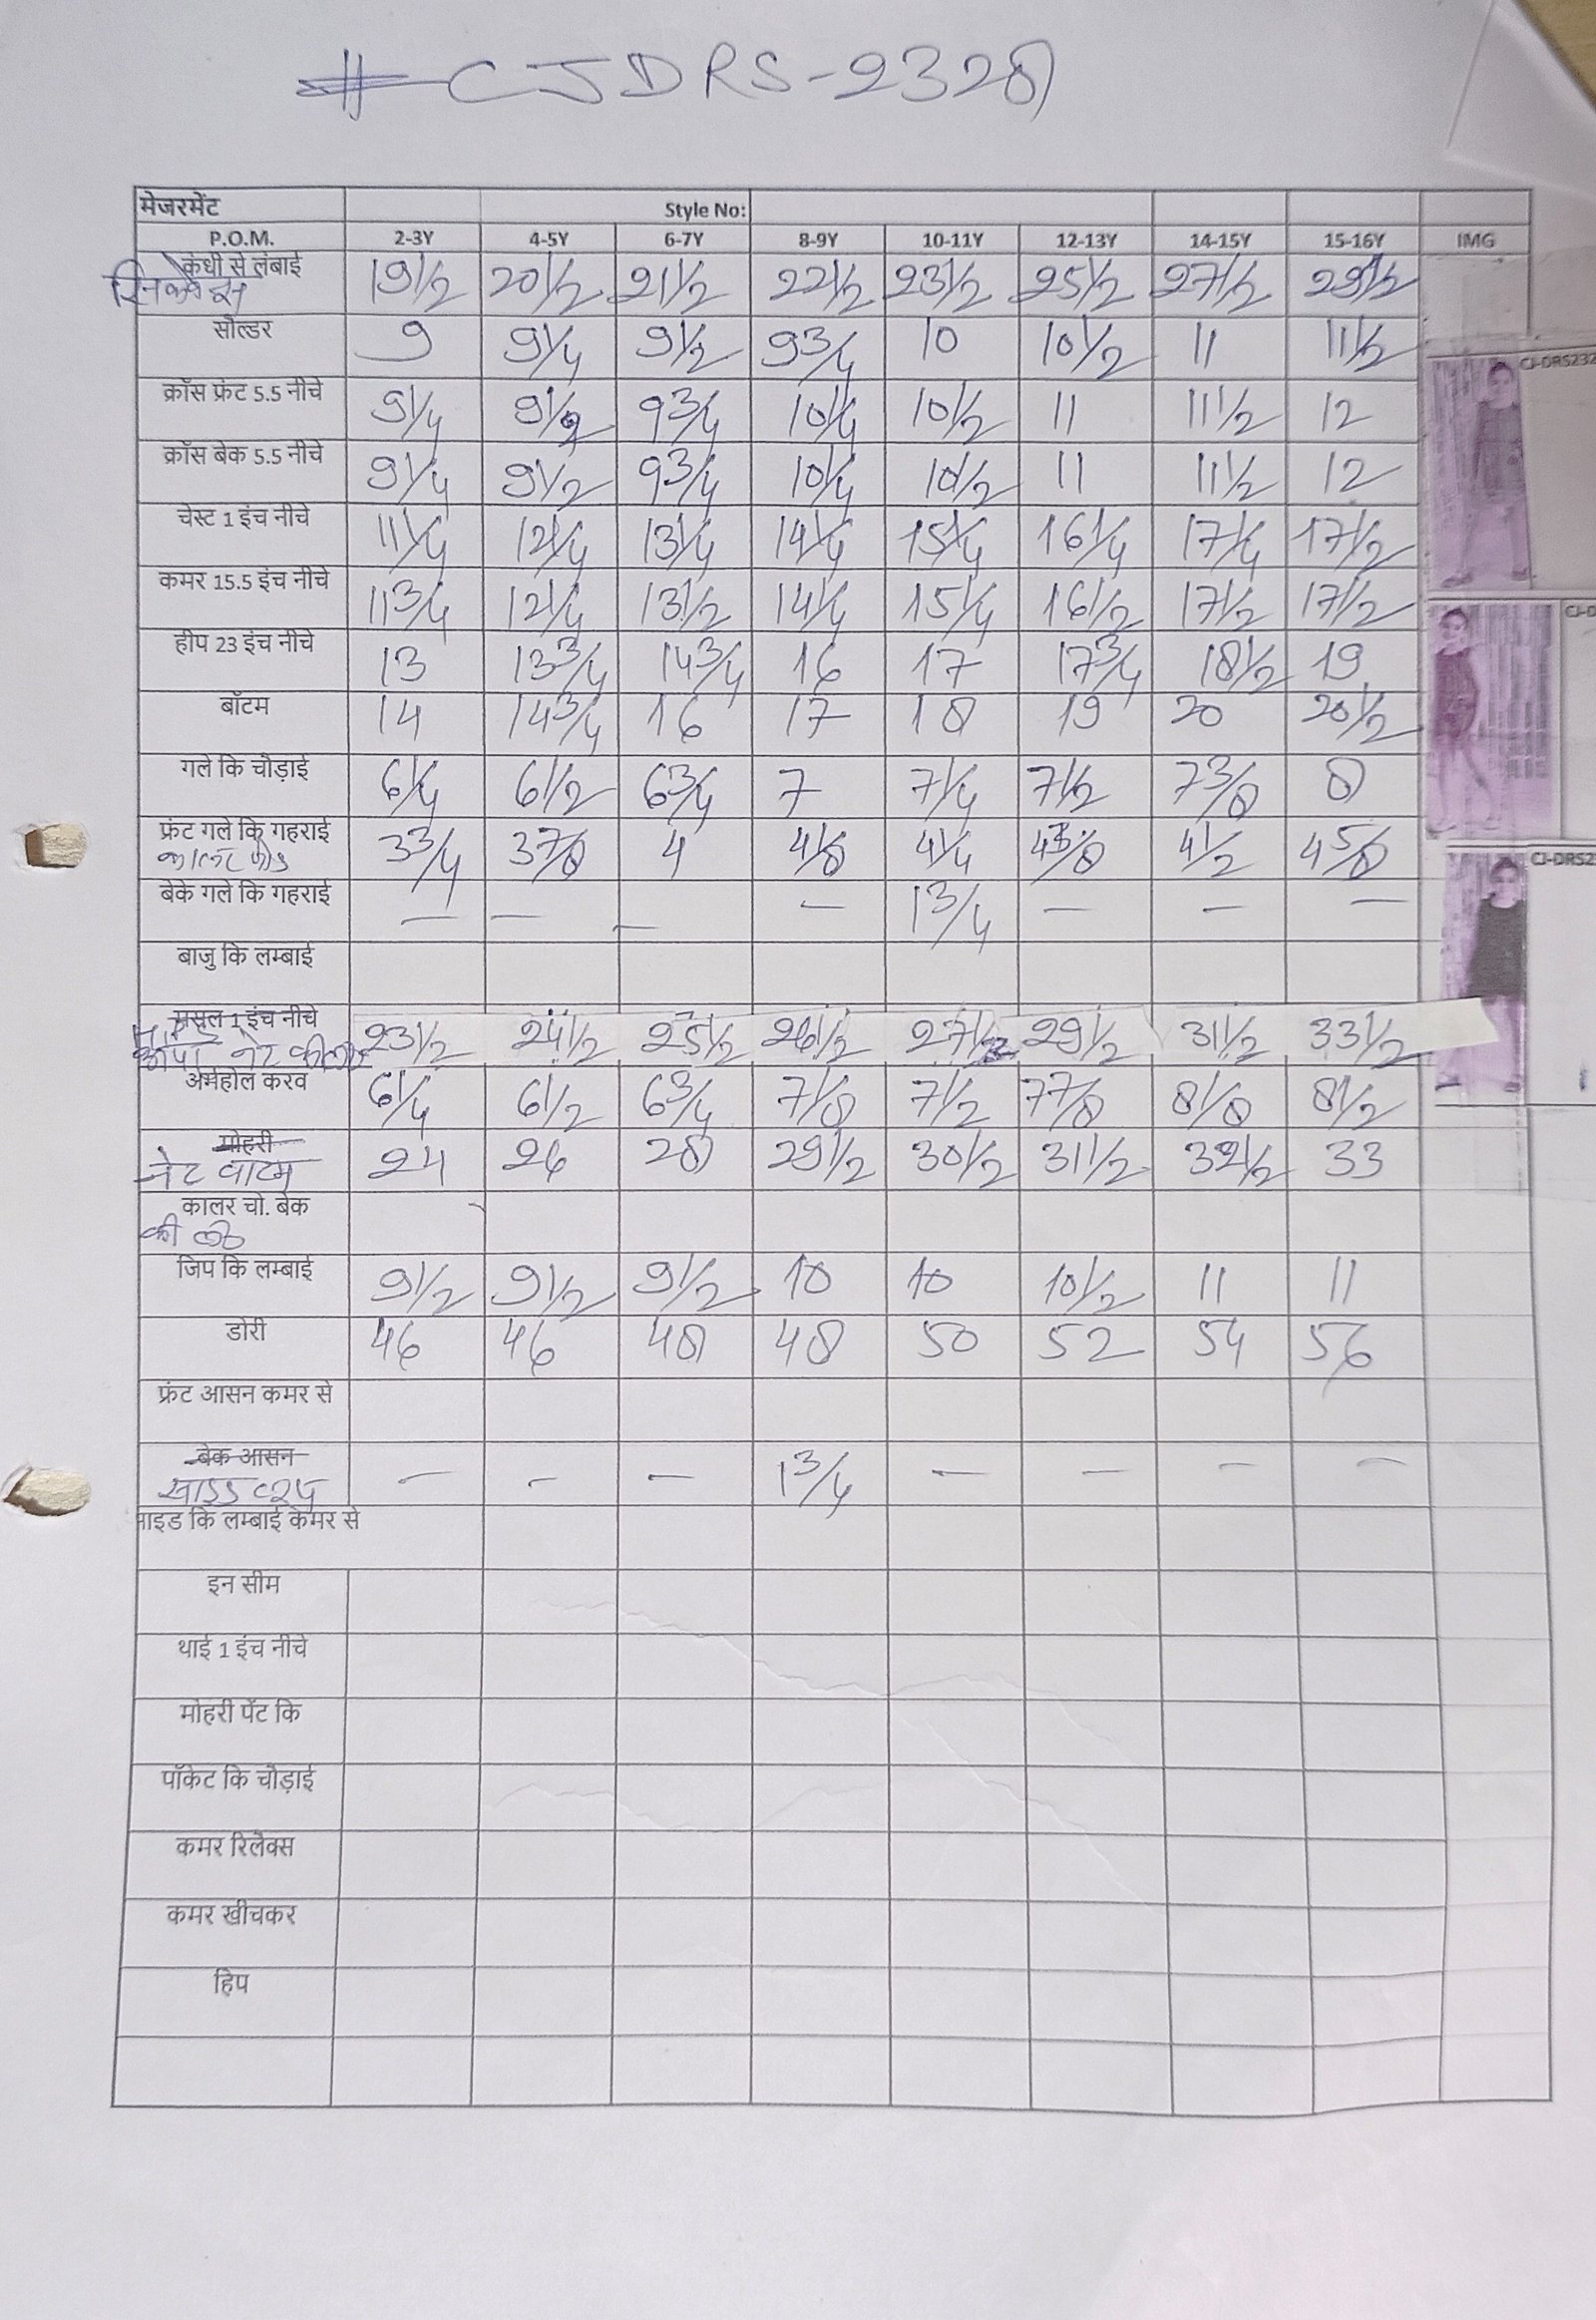 #CJDRS-2328
मेजरमेंट Style No:
P.O.M. 2-3Y 4-5Y 6-7Y 8-9Y 10-11Y 12-13Y 14-15Y 15-16Y IMG
कंधी से लंबाई 19 1/2 20 1/2 21 1/2 22 1/2 23 1/2 25 1/2 27 1/2 29 1/2
सोल्डर 9 9 1/4 9 1/2 9 3/4 10 10 1/2 11 11 1/2
CJ-DRS232
क्रॉस फ्रंट 5.5 नीचे 9 1/4 9 1/2 9 3/4 10 1/4 10 1/2 11 11 1/2 12
क्रॉस बेक 5.5 नीचे 9 1/4 9 1/2 9 3/4 10 1/4 10 1/2 11 11 1/2 12
चेस्ट 1 इंच नीचे 11 1/4 12 1/4 13 1/4 14 1/4 15 1/4 16 1/4 17 1/4 17 1/2
कमर 15.5 इंच नीचे 11 3/4 12 1/4 13 1/2 14 1/4 15 1/4 16 1/2 17 1/2 17 1/2
CJ-D
हीप 23 इंच नीचे 13 13 3/4 14 3/4 16 17 17 3/4 18 1/2 19
बॉटम 14 14 3/4 16 17 18 19 20 20 1/2
गले कि चौड़ाई 6 1/4 6 1/2 6 3/4 7 7 1/4 7 1/2 7 3/8 8
फ्रंट गले कि गहराई 3 3/4 3 7/8 4 4 1/8 4 1/4 4 3/8 4 1/2 4 5/8
CJ-DRS2
बेके गले कि गहराई — — — — 1 3/4 — — —
बाजु कि लम्बाई
मसल 1 इंच नीचे 23 1/2 24 1/2 25 1/2 26 1/2 27 1/2 29 1/2 31 1/2 33 1/2
अर्महोल करव 6 1/4 6 1/2 6 3/4 7 1/8 7 1/2 7 7/8 8 1/8 8 1/2
मोहरी
नेट बाटम 24 26 28 29 1/2 30 1/2 31 1/2 32 1/2 33
कालर चो. बेक
जिप कि लम्बाई 9 1/2 9 1/2 9 1/2 10 10 10 1/2 11 11
डोरी 46 46 48 48 50 52 54 56
फ्रंट आसन कमर से
बेक आसन — — — 1 3/4 — — — —
साइड कि लम्बाई कमर से
इन सीम
थाई 1 इंच नीचे
मोहरी पेंट कि
पॉकेट कि चौड़ाई
कमर रिलेक्स
कमर खीचकर
हिप